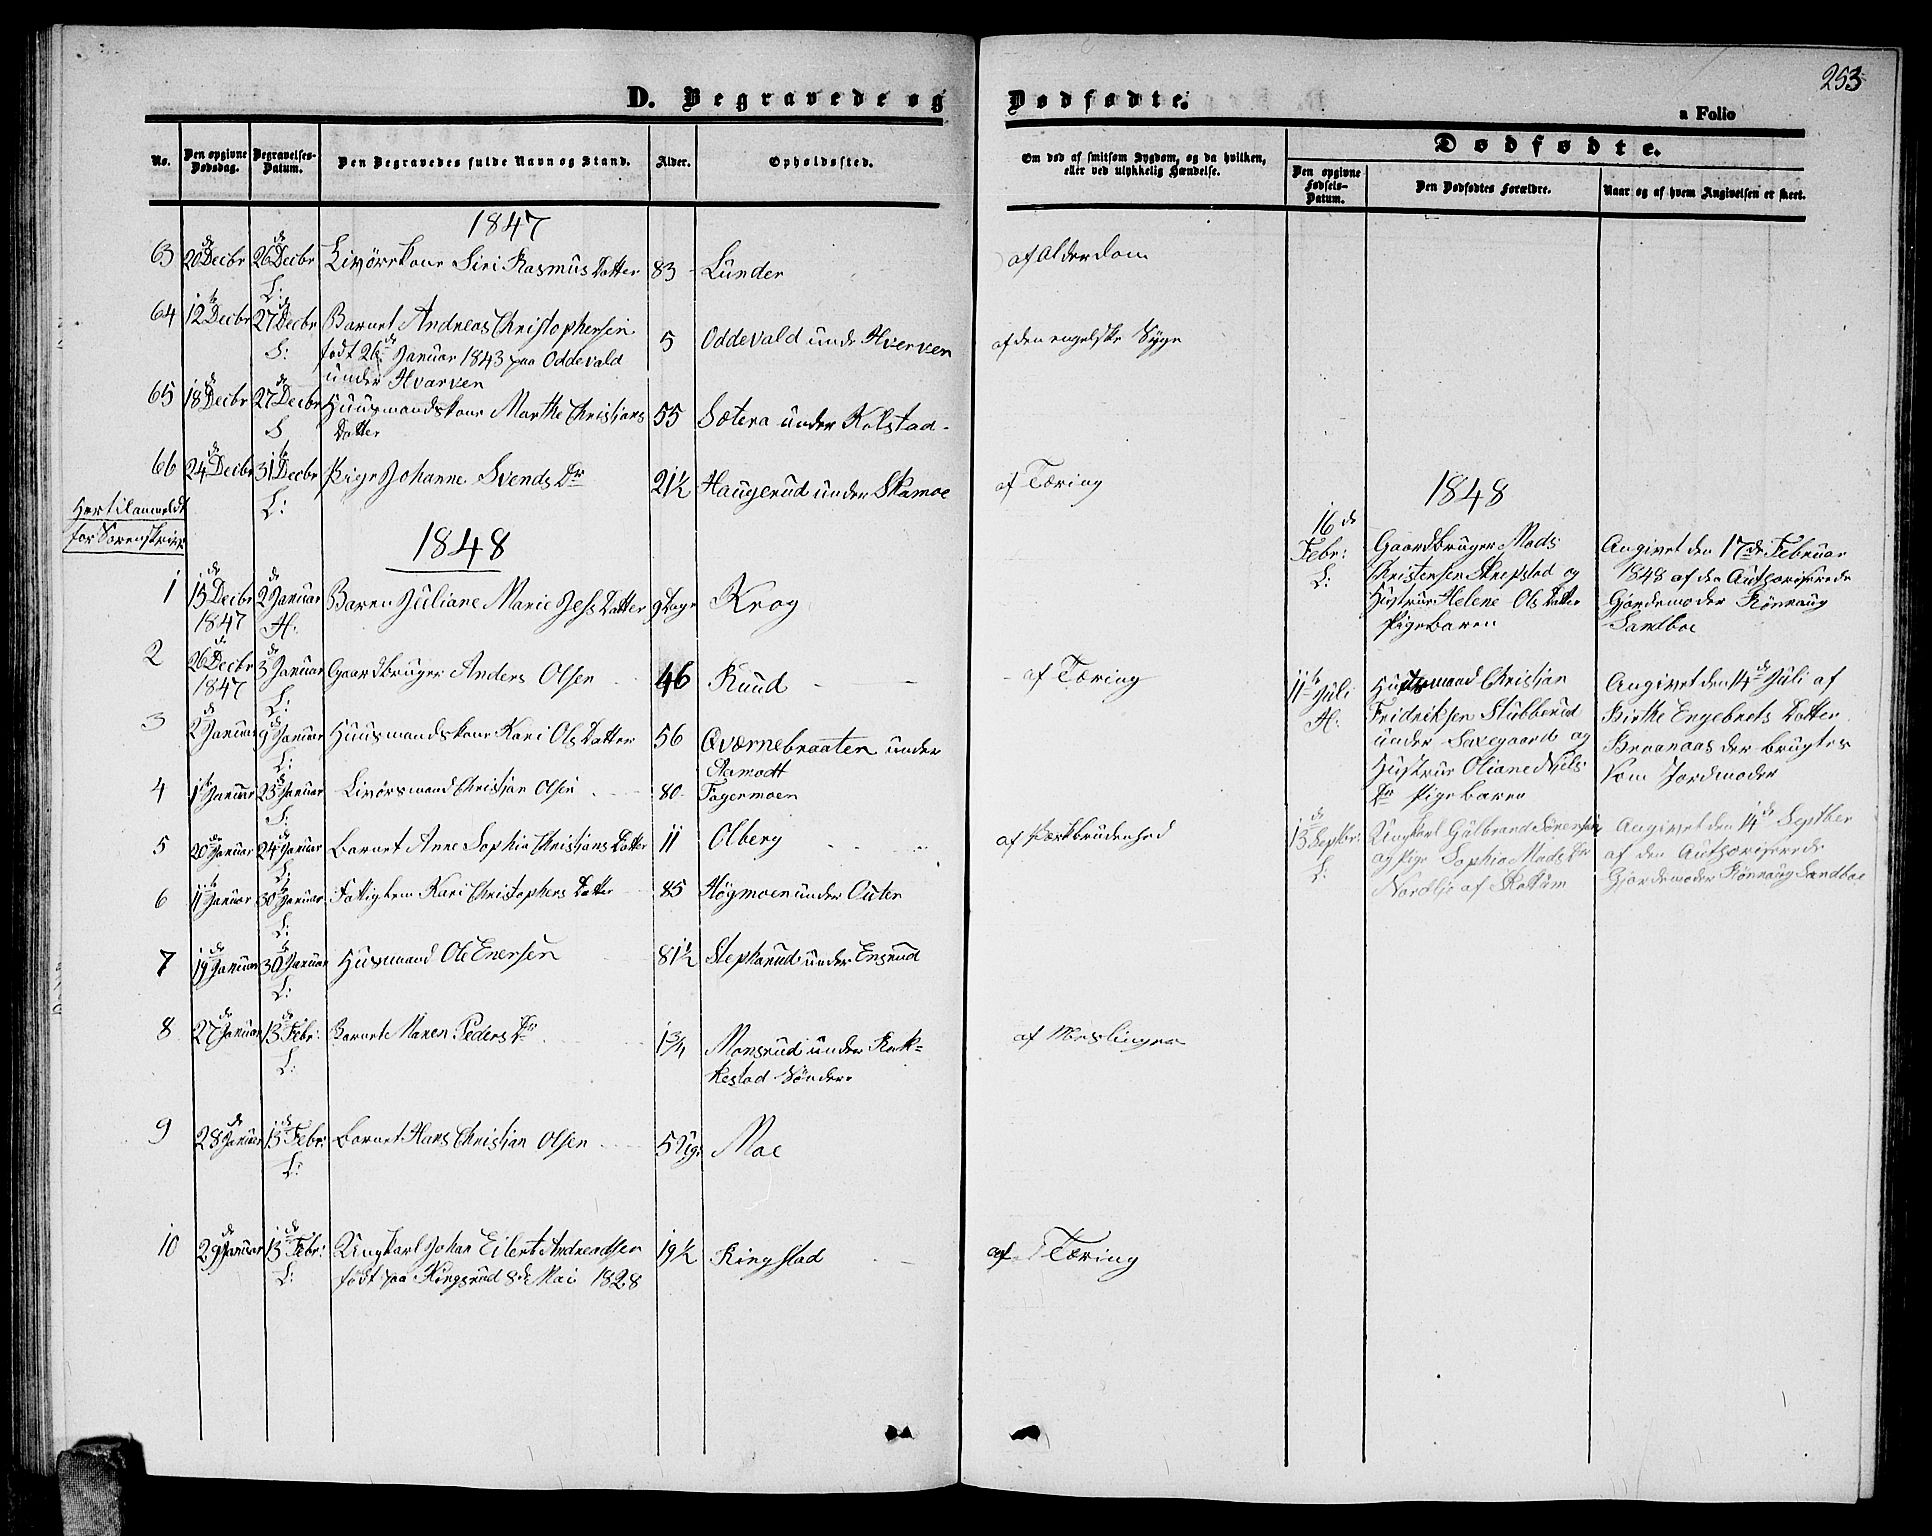 253
D. Begravede og Dødfødte.
a Folio
No.
Den opgivne Dødsdag.
Begravelses-Datum.
Den Begravedes fulde Navn og Stand.
Alder.
Opholdssted.
Om død af smitsom Sygdom, og da hvilken,
eller ved ulykkelig Hændelse.
Dødfødte.
Den opgivne Fødsels-Datum.
Den Dødfødtes Forældre.
Naar og af hvem Angivelsen er skeet.
1847
63 20de Decbr 26de Decbr Livørskone Siri Rasmus Datter 83 Lunder af Alderdom
L:
64 12te Decbr 27de Decbr Barnet Andreas Christophersen 5 Oddevald under Hverven af den engelske Syge
S: født 26de Januar 1843 paa Oddevald
under Hvarven
65 18de Decbr 27de Decbr Huusmandskone Marthe Christians 55 Sætera under Kolstad
S Datter
66 24de Decbr 31te Decbr Pige Johanne Svends Dr 21½ Haugerud under Skamoe af Tæring
L:
Hertil anmeldt
for Sorenskriver
1848
1 13de Decbr 2de Januar Baren Juliane Marie Jess Datter 9 Dage Krog
1847 H.
2 26de Decbr 3de Januar Gaardbruger Anders Olsen 46 Ruud af Tæring
1847 L:
3 2de Januar 9de Januar Huusmandskone Kari Ols Datter 56 Qværnebraaten under
L: Stamodt
4 1te Januar 23de Januar Livørsmand Christian Olsen 80 Fagermoen
S:
5 20de Januar 24de Januar Barnet Anne Sophie Christians Datter 11 Olberg af Værkbrudenhed
L:
6 11te Januar 30te Januar Fattiglem Kari Christophers Datter 85 Høgmoen under Outen
L:
7 19de Januar 30te Januar Husmand Ole Enersen 81½ Stephsrud under Ensrud
L:
8 27de Januar 13de Febr: Barnet Maren Peders Dr 1¾ Monsrud under Rak=
L: kestad Søndere
af Meslinger
9 28de Januar 13de Febr: Barnet Hans Christian Olsen 5 Uger Moe
L:
10 29de Januar 13de Febr: Ungkarl Johan Eilert Andreadsen 19½ Ringstad af Tæring
L: født paa Ringsrud 8de Mai 1828
1848
16de
Febr:
L:
Gaardbruger Mads
Christensen Skrepstad og
Hustrue Helene Ols Datter
Pigebaren
Angivet den 17de Februar
1848 af den Authoriserede
Gjordemoder Rønnaug
Sandboe
11te Juli
H.
Husmand Christian
Fridriksen Stubberud
under Saxegaard og
Hustrue Oliane Niels
Dr Pigebaren
Angivet den 14de Juli af
Birthe Engebrets Datter
Braanaas der brugtes
som Jordmoder
13de Septbr:
L:
Ungkarl Gulbrand Sørensen
og Pige Sophia Mads Dr
Nordlie af Skottum
Angivet den 14de Septber
af den Authoriserede
Gjordemoder Rønnaug Sandboe